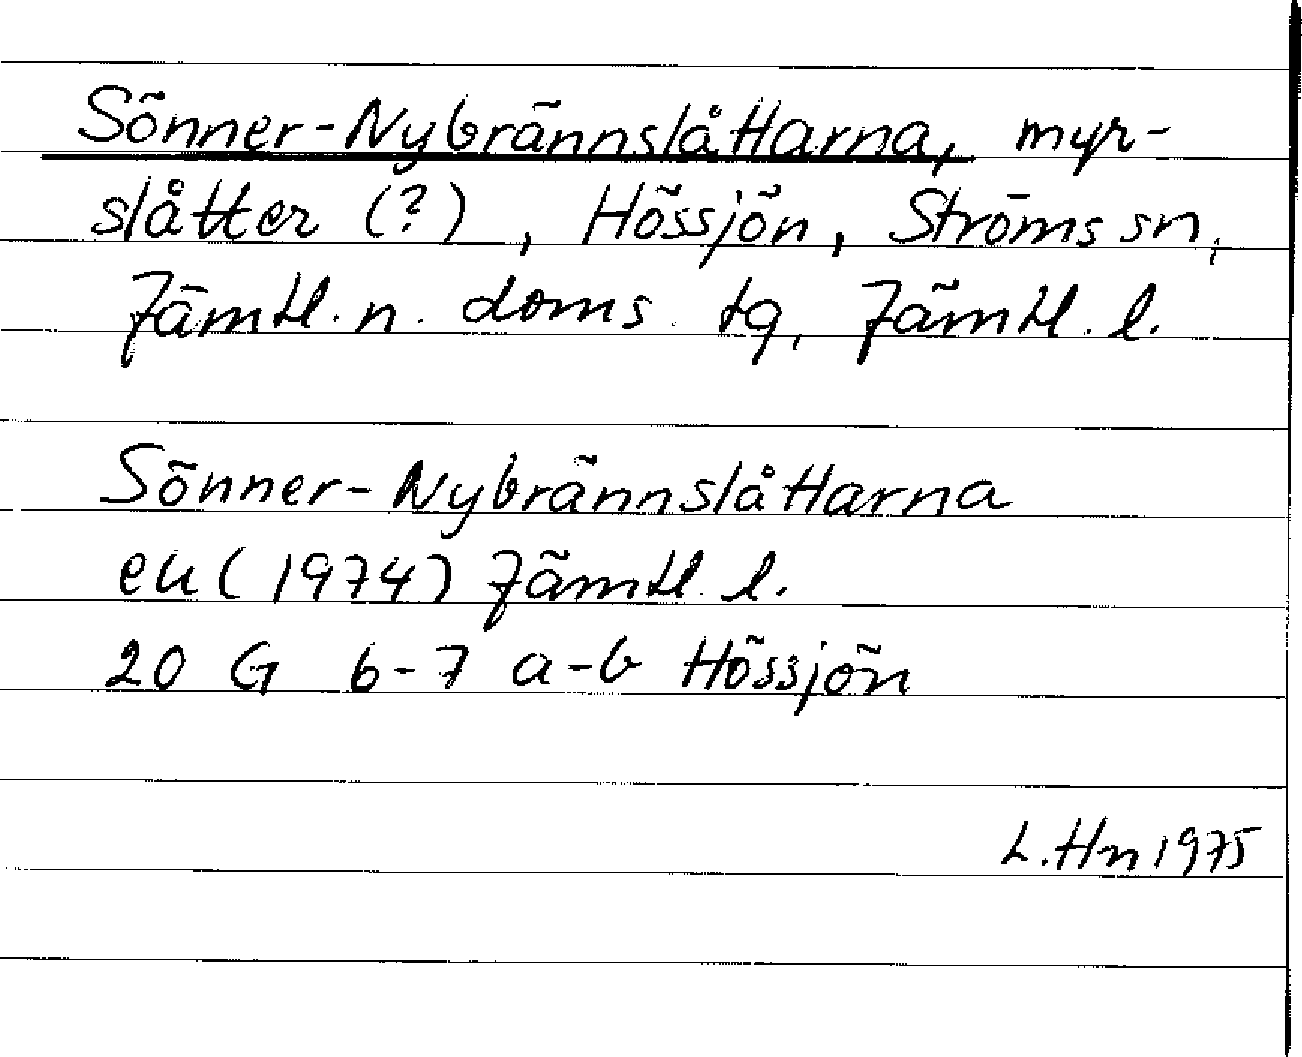 Sönner-Nybrännslåttarna, myr-
slåtter (?), Hössjön, Ströms sn,
Jämtl. n. doms. tg, Jämtl. l.
Sönner-Nybrännslåttarna
ek (1974) Jämtl. l.
20 G 6-7 a-b Hössjön
L. Hn 1975